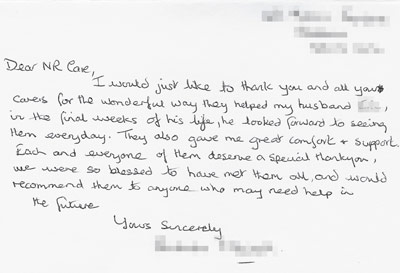 Dear NR Care,
I would just like to thank you and all your
carers for the wonderful way they helped my husband
in the final weeks of his life, he looked forward to seeing
them everyday. They also gave me great comfort + support.
Each and everyone of them deserve a special thankyou,
we were so blessed to have met them all, and would
recommend them to anyone who may need help in
the future
Yours Sincerely